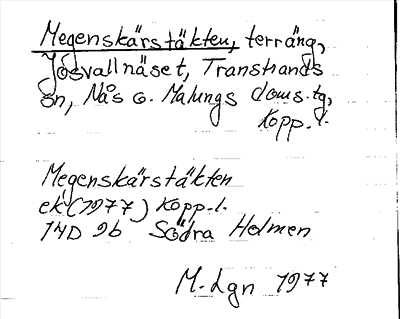 Megenskärstäkten, terräng,
Jogvallnäset, Transtrands
sn, Nås o. Malungs doms.tg,
Kopp.l.
Megenskärstäkten
ek (1977) Kopp.l.
14D 9b Södra Helmen
M. Lgn 1977